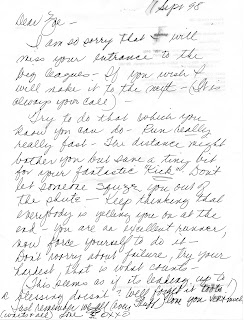 11 Sept 98
Dear Zoe -
I am so sorry that I will
miss your entrance to the
big leagues - If you wish I
will make it to the next - (It is
always your call) -
Try to do that which you
know you can do - Run really
really fast - The distance might
bother you but save a tiny bit
for your fantastic "Kick" Don't
let someone squeeze you out of
the chute - Keep thinking that
everybody is yelling you on at the
end - You are an excellent runner,
now force yourself to do it -
Don't worry about failure, try your
hardest, that is what counts -
(This seems as if it's leading up to
a blessing doesn't? Well
Just remember we all love
Love XOXO